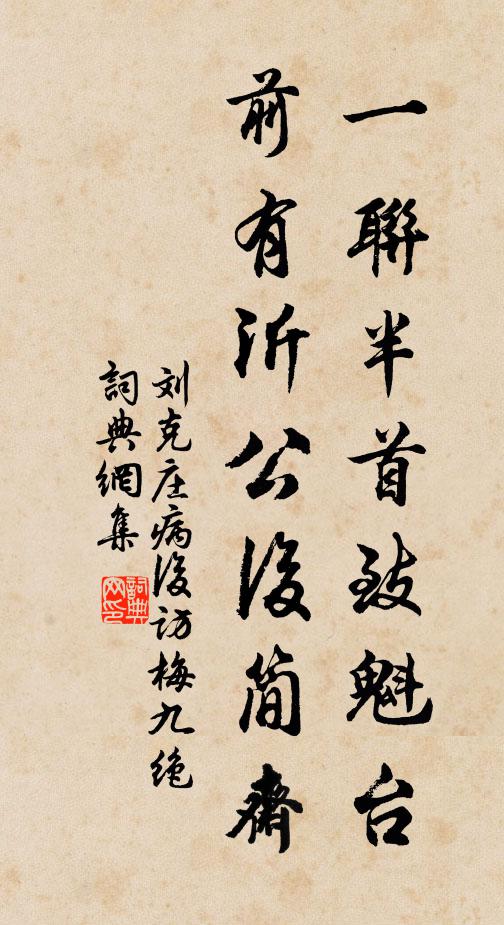 一聯半首致魁台
前有沂公後簡齋
刘克庄病後訪梅九绝
詞典網集
詞典
网印